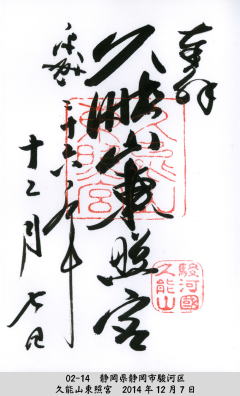 奉拝
久能山東照宮
平成二十六年
十二月七日
久能山
東照宮
駿河國
久能山
02-14 静岡県静岡市駿河区
久能山東照宮 2014年12月7日